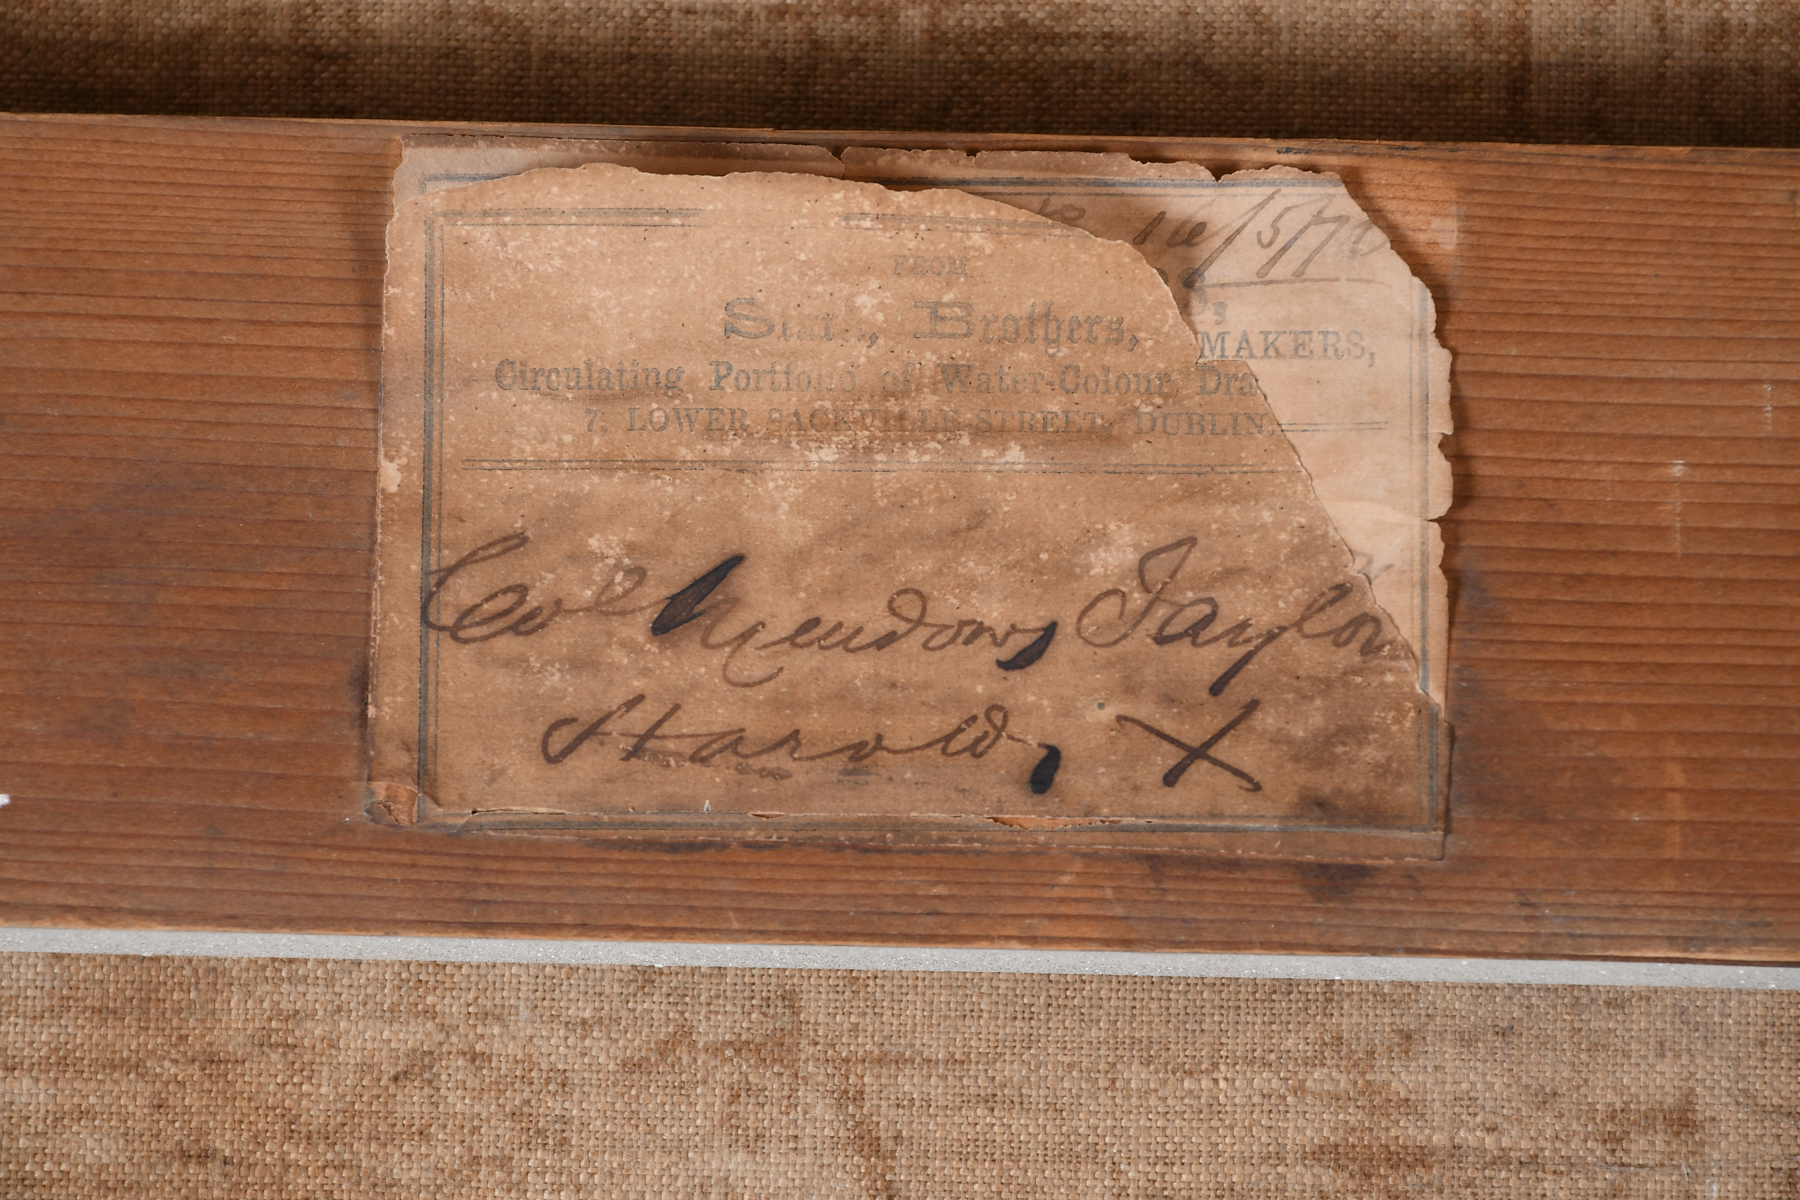 16/5/72
FROM
Brothers,
MAKERS,
Circulating Portfolio of Water-Colour Dra
7, LOWER SACKVILLE STREET, DUBLIN.
Col Meadows Taylor
Harold, X